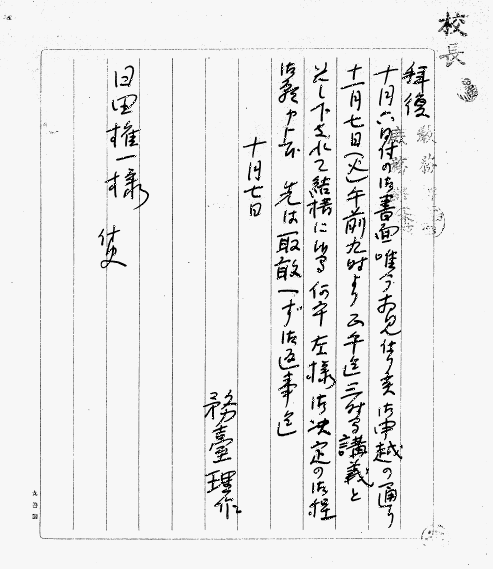 校長
拝復
十月六日付の御書面唯今拝見仕り候 御申越の通り
十一月七日(火)午前九時より正午迄三時間講義と
して下されて結構に候 何卒左様御決定の御程
御願申上候 先は取敢へず御返事迄
十月七日
務臺理作
日田権一様
侍史